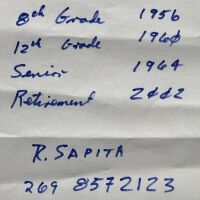 8th Grade 1956
12th Grade 1960
Senior 1964
Retirement 2002
R. SAPITA
269 8572123